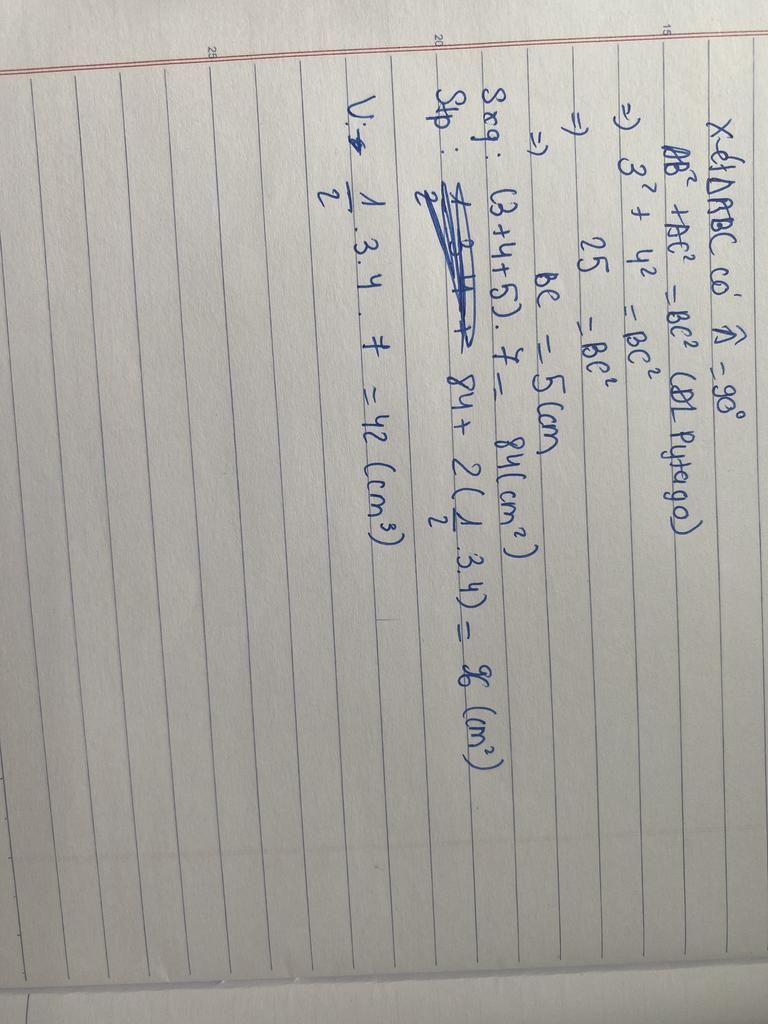 Xét ΔABC có Â = 90°
AB² + AC² = BC² (ĐL Pytago)
=) 3² + 4² = BC²
=) 25 = BC²
=) BC = 5 (cm
Sxq: (3+4+5).7 = 84 (cm²)
Stp: 84 + 2(1/2 .3.4) = 96 (cm²)
V: 1/2 .3.4.7 = 42 (cm³)
15
20
25